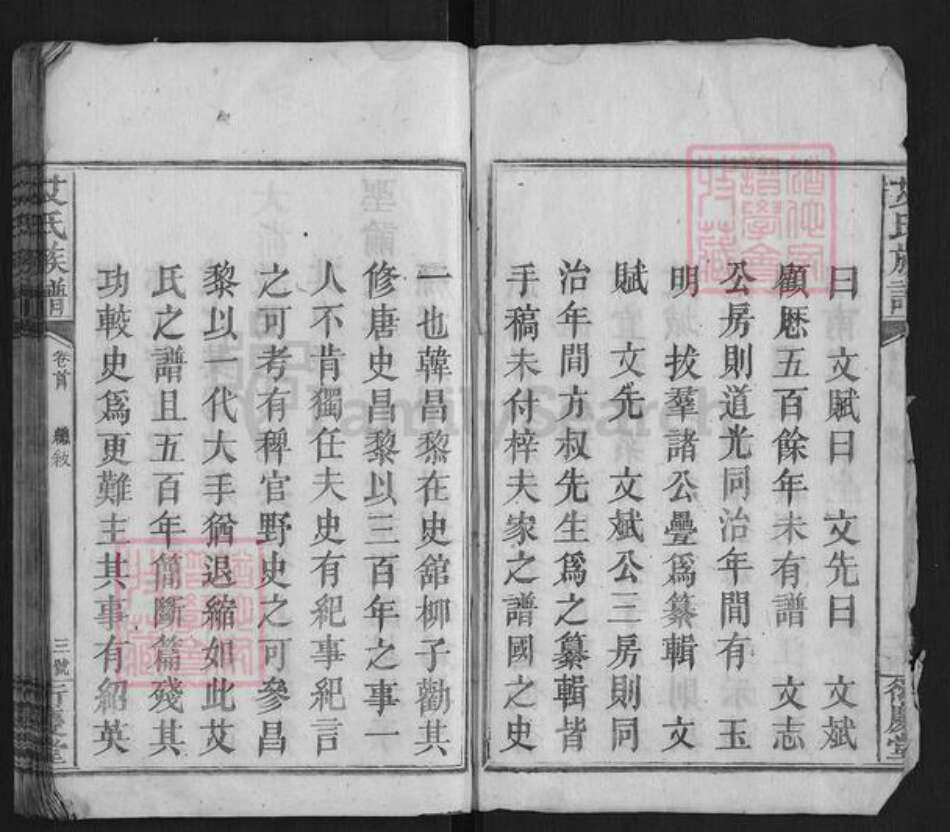 曰　文賦曰　文先曰　文斌
顧歷五百餘年未有譜　文志
公房則道光同治年間有　玉
明　拔羣諸公疊爲纂輯　文
賦　文先　文斌公三房則同
治年間方叔先生爲之纂輯皆
手稿未付梓夫家之譜國之史
一也韓昌黎在史舘柳子勸其
修唐史昌黎以三百年之事一
人不肯獨任夫史有紀事紀言
之可考有稗官野史之可參昌
黎以一代大手猶退縮如此艾
氏之譜且五百年簡斷篇殘其
功較史爲更難主其事有紹英
艾氏族譜
卷首　總敘
三號
FamilySearch